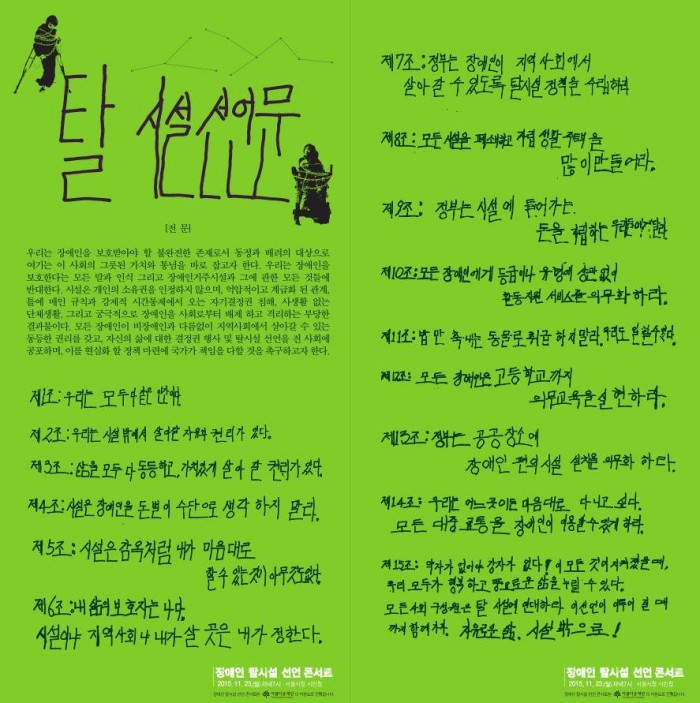 탈시설선언문
[전 문]
우리는 장애인을 보호받아야 할 불완전한 존재로서 동정과 배려의 대상으로
여기는 이 사회의 그릇된 가치와 통념을 바로 잡고자 한다. 우리는 장애인을
보호한다는 모든 말과 인식 그리고 장애인거주시설과 그에 관한 모든 것들에
반대한다. 시설은 개인의 소유권을 인정하지 않으며, 억압적이고 계급화 된 관계,
틀에 매인 규칙과 강제적 시간통제에서 오는 자기결정권 침해, 사생활 없는
단체생활, 그리고 궁극적으로 장애인을 사회로부터 배제 하고 격리하는 부당한
결과물이다. 모든 장애인이 비장애인과 다름없이 지역사회에서 살아갈 수 있는
동등한 권리를 갖고, 자신의 삶에 대한 결정권 행사 및 탈시설 선언을 전 사회에
공포하며, 이를 현실화 할 정책 마련에 국가가 책임을 다할 것을 촉구하고자 한다.
제1조: 우리는 모두
제2조: 우리는 시설 밖에서 살아갈 자유와 권리가 있다.
제3조: 삶을 모두 다 동등하고, 가치있게 살아 갈 권리가 있다.
제4조: 시설은 장애인을 돈벌이 수단으로 생각 하지 말라.
제5조: 시설은 감옥처럼 내가 마음대로
할 수 있는 것이 아무것도 없다.
제6조: 내 삶의 보호자는 나다.
시설이냐 지역사회냐 내가 살 곳은 내가 정한다.
장애인 탈시설 선언 콘서트
2015. 11. 23.(월) 저녁7시 서울시청 시민청
제7조: 정부는 장애인이 지역 사회에서
살아 갈 수 있도록 탈시설 정책을 수립하라
제8조: 모든 시설을 폐쇄하고 자립 생활 주택을
많이 만들어라.
제9조: 정부는 시설에 들어가는
돈을
제10조: 모든 장애인에게 등급이나 유형에 상관 없이
활동지원 서비스를 의무화 하라.
제11조: 밥 만 축 내는 동물로 취급 하지 말라. 우리도 일 할 수 있다.
제12조: 모든 장애인은 고등학교까지
의무교육을 실현하라.
제13조: 정부는 공공장소에
장애인 편의시설 설치를 의무화 하라.
제14조: 우리는 어느곳이든 마음대로 다니고 싶다.
모든 대중 교통을 장애인이 이용할 수 있게 하라.
제15조: 약자가 없어야 강자가 없다! 이 모든 것이 지켜졌을 때,
우리 모두가 행복하고 풍요로운 삶을 누릴 수 있다.
모든 사회 구성원은 탈 시설에 연대하라. 이 선언이 이루어 질 때
까지 함께 자유로운 삶, 시설 밖으로!
장애인 탈시설 선언 콘서트
2015. 11. 23.(월) 저녁7시 서울시청 시민청